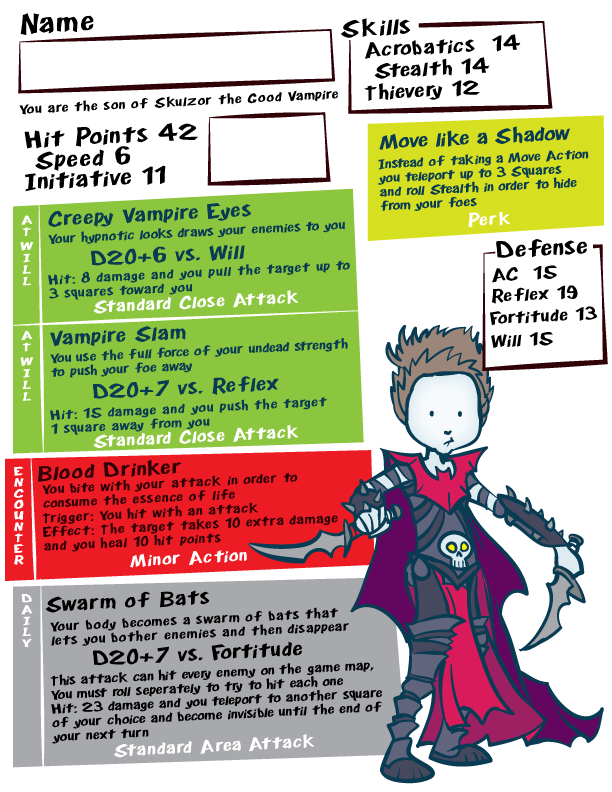 Name
You are the son of Skulzor the Good Vampire
Skills
Acrobatics 14
Stealth 14
Thievery 12
Hit Points 42
Speed 6
Initiative 11
Move like a Shadow
Instead of taking a Move Action
you teleport up to 3 Squares
and roll Stealth in order to hide
from your foes
Perk
AT WILL
Creepy Vampire Eyes
Your hypnotic looks draws your enemies to you
D20+6 vs. Will
Hit: 8 damage and you pull the target up to
3 squares toward you
Standard Close Attack
Defense
AC 15
Reflex 19
Fortitude 13
Will 15
AT WILL
Vampire Slam
You use the full force of your undead strength
to push your foe away
D20+7 vs. Reflex
Hit: 15 damage and you push the target
1 square away from you
Standard Close Attack
ENCOUNTER
Blood Drinker
You bite with your attack in order to
consume the essence of life
Trigger: You hit with an attack
Effect: The target takes 10 extra damage
and you heal 10 hit points
Minor Action
DAILY
Swarm of Bats
Your body becomes a swarm of bats that
lets you bother enemies and then disappear
D20+7 vs. Fortitude
This attack can hit every enemy on the game map,
You must roll seperately to try to hit each one
Hit: 23 damage and you teleport to another square
of your choice and become invisible until the end of
your next turn
Standard Area Attack